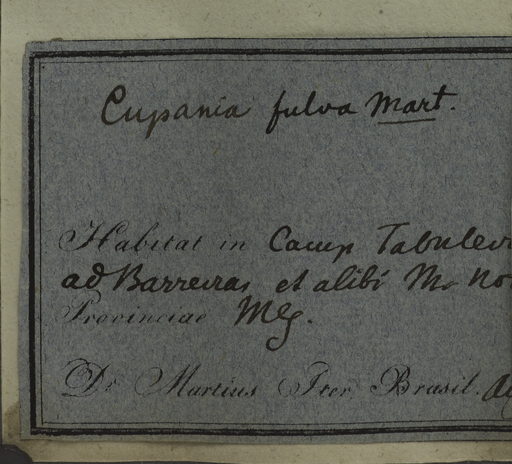 Cupania fulva Mart.
Habitat in Camp Tabuleir
ad Barreiras et alibi
Provinciae
Dr Martius Iter Brasil.